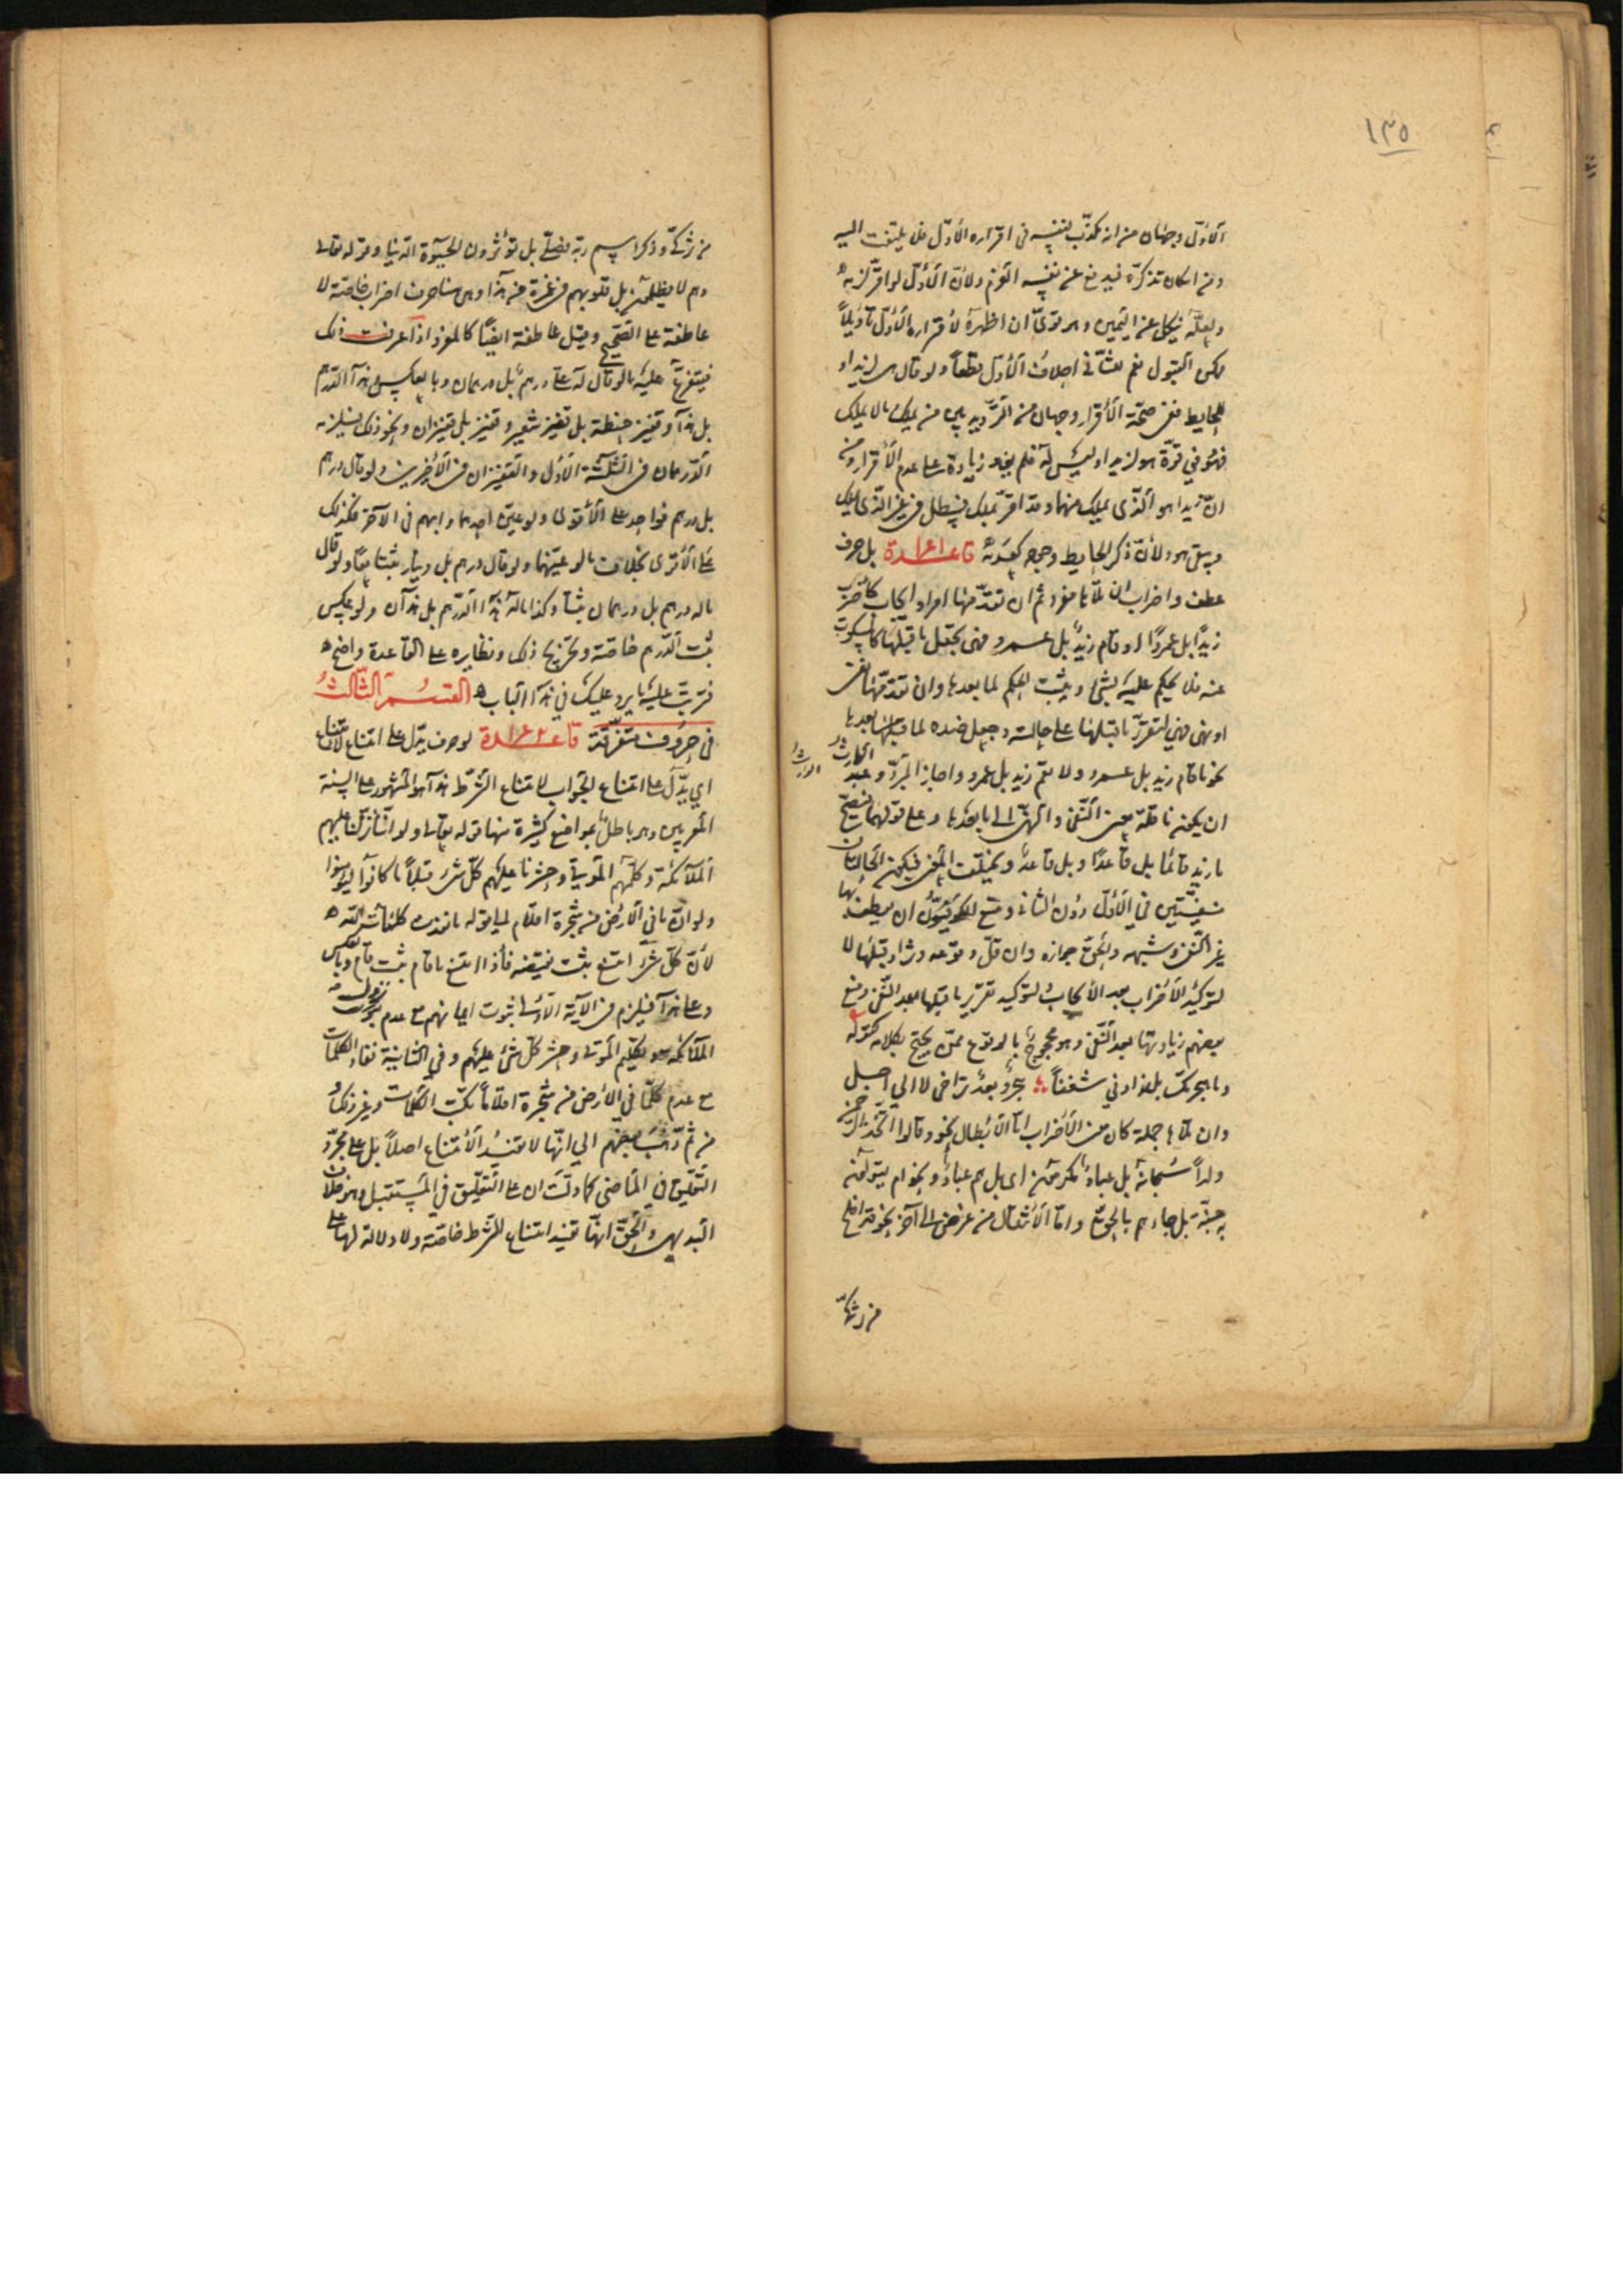 ١٣٥
الاوّل وجهان من انه مكذّب لنفسه فى اقراره الاوّل فلا يلتفت اليه
ومن امكان تذكرّه فيدفع عن نفسه الغرم ولانّ الاوّل لو اقرّ لزمه
ولعلّه ينكل عن اليمين وهو قوىّ ان اظهر لاقراره الاوّل تاويلاً
ممكن القبول نعم للثانى احلاف الاوّل قطعاً ولو قال هى لزيد او
للحايط ففى صحّة الاقرار وجهان من الترديد بين من يملك ومالا يملك
فهو فى قوّة هو لزيد او ليس له فلم يفد زيادة على عدم الاقرار ومن
انّ زيدا هو الذى يملك منهما وقد اقرّ بملك فيبطل فى غير الذى يملك
ويبقى هو ولانّ ذكر الحايط وجوده كعدمه قاعدة بل حرف
عطف واضراب ان تلاها مفرد ثم ان تقدّمها امر او ايجاب كاضرب
زيداً بل عمرواً او قام زيد بل عمرو فهى تجعل ما قبلها كالمسكوت
عنه فلا يحكم عليه بشئ ويثبت الحكم لما بعدها وان تقدّمها نفى
او نهى فهى لتقرير ما قبلها على حالته وجعل ضده لما بعدها
نحو ما قام زيد بل عمرو ولا يقم زيد بل عمرو واجاز المبرّد وعبد الوارث
ان يكون ناقلة معنى النفى والنهى الى ما بعدها وعلى قولهما فيصحّ
ما زيد قائما بل قاعدًا وبل قاعد ويختلف المعنى فيكون الحالتان
منفيّتين فى الاوّل دون الثانى ومنع الكوفيّون ان يعطف بها
غير النفى وشبهه والحق جوازه وان قلّ وقوعه وتزاد قبلها لا
لتوكيد الاضراب بعد الايجاب ولتوكيد تقرير ما قبلها بعد النفى ومنع
بعضهم زيادتها بعد النفى وهو محجوج بالوقوع ممّن يحتج بكلامه كقوله
وما هجرتك بل زادنى شغفاً هجر وبعد تراخى لا الى اجل
وان تلاها جملة كان معنى الاضراب امّا الابطال نحو وقالوا اتّخذ الرحمن
ولداً سبحانه بل عباد مكرمون اى بل هم عباد ونحو ام يقولون
به جنّة بل جاءهم بالحق وامّا الانتقال من غرض الى آخر نحو قد افلح
من تزكّى
من تزكّى وذكر اسم ربّه فصلّى بل تؤثرون الحيوة الدّنيا وقوله تعالى
وهم لا يظلمون بل قلوبهم فى غمرة من هذا وهى هنا حرف اضراب خاصّة لا
عاطفة على الصحيح وقيل عاطفة ايضاً كالمفرد اذا عرفت ذلك
فيتفرع عليه ما لو قال له علىّ درهم بل درهمان وبالعكس وهذا الدّرهم
بل هذا وقفيز حنطة بل قفيز شعير وقفيز بل قفيزان ونحو ذلك فيلزمه
الدّرهمان فى الثلثة الاول والقفيزان فى الاخرين ولو قال درهم
بل درهم فواحد على الاقوى ولو عيّن احدهما وابهم فى الآخر فكذلك
على الاقوى بخلاف ما لو عيّنهما ولو قال درهم بل دينار ثبتا معًا ولو قال
ماله درهم بل درهمان ثبتا وكذا ماله هذا الدّرهم بل هذان ولو عكس
ثبت الدّرهم خاصّة وتخريج ذلك ونظايره على القاعدة واضح
فرتّب عليه ما يرد عليك فى هذا الباب القسم الثالث
فى حروف متفرّقة قاعدة لو حرف يدّل على امتناع لامتناع
اى يدّل على امتناع الجواب لامتناع الشرط هذا هو المشهور على السنة
المعربين وهو باطل بمواضع كثيرة منها قوله تعالى ولو انّنا نزّلنا عليهم
الملائكة وكلّمهم الموتى وحشرنا عليهم كلّ شئ قبلاً ما كانوا ليؤمنوا
ولو انّ ما فى الارض من شجرة اقلام الى قوله ما نفدت كلمات الله
لانّ كلّ شئ امتنع ثبت نقيضه فاذا امتنع ما قام ثبت قام وبالعكس
وعلى هذا فيلزم فى الآية الاولى ثبوت ايمانهم مع عدم نزول
الملائكة وتكليم الموتى وحشر كلّ شئ عليهم وفى الثانية نفاد الكلمات
مع عدم كلّما فى الارض من شجرة اقلاماً تكتب الكلمات وغير ذلك و
من ثمّ ذهب بعضهم الى انّها لا تفيد الامتناع اصلاً بل على مجرّد
التعليق فى الماضى كما دلّت ان على التعليق فى المستقبل وهو خلاف
البديهى والحقّ انّها تفيد امتناع الشرط خاصّة ولا دلالة لها على